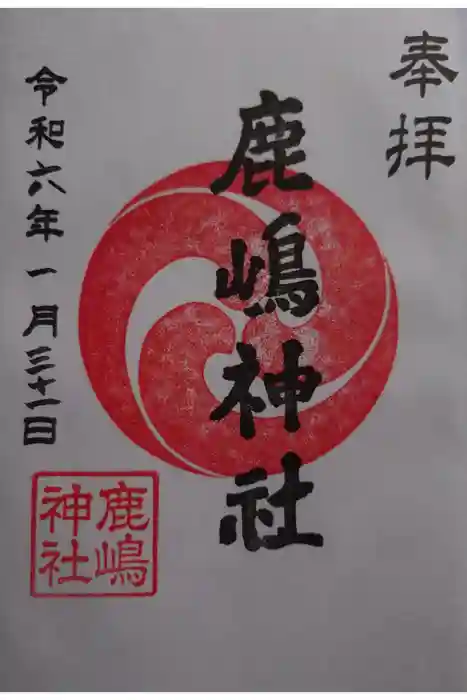 奉拝
鹿嶋神社
令和六年一月三十一日
鹿嶋
神社